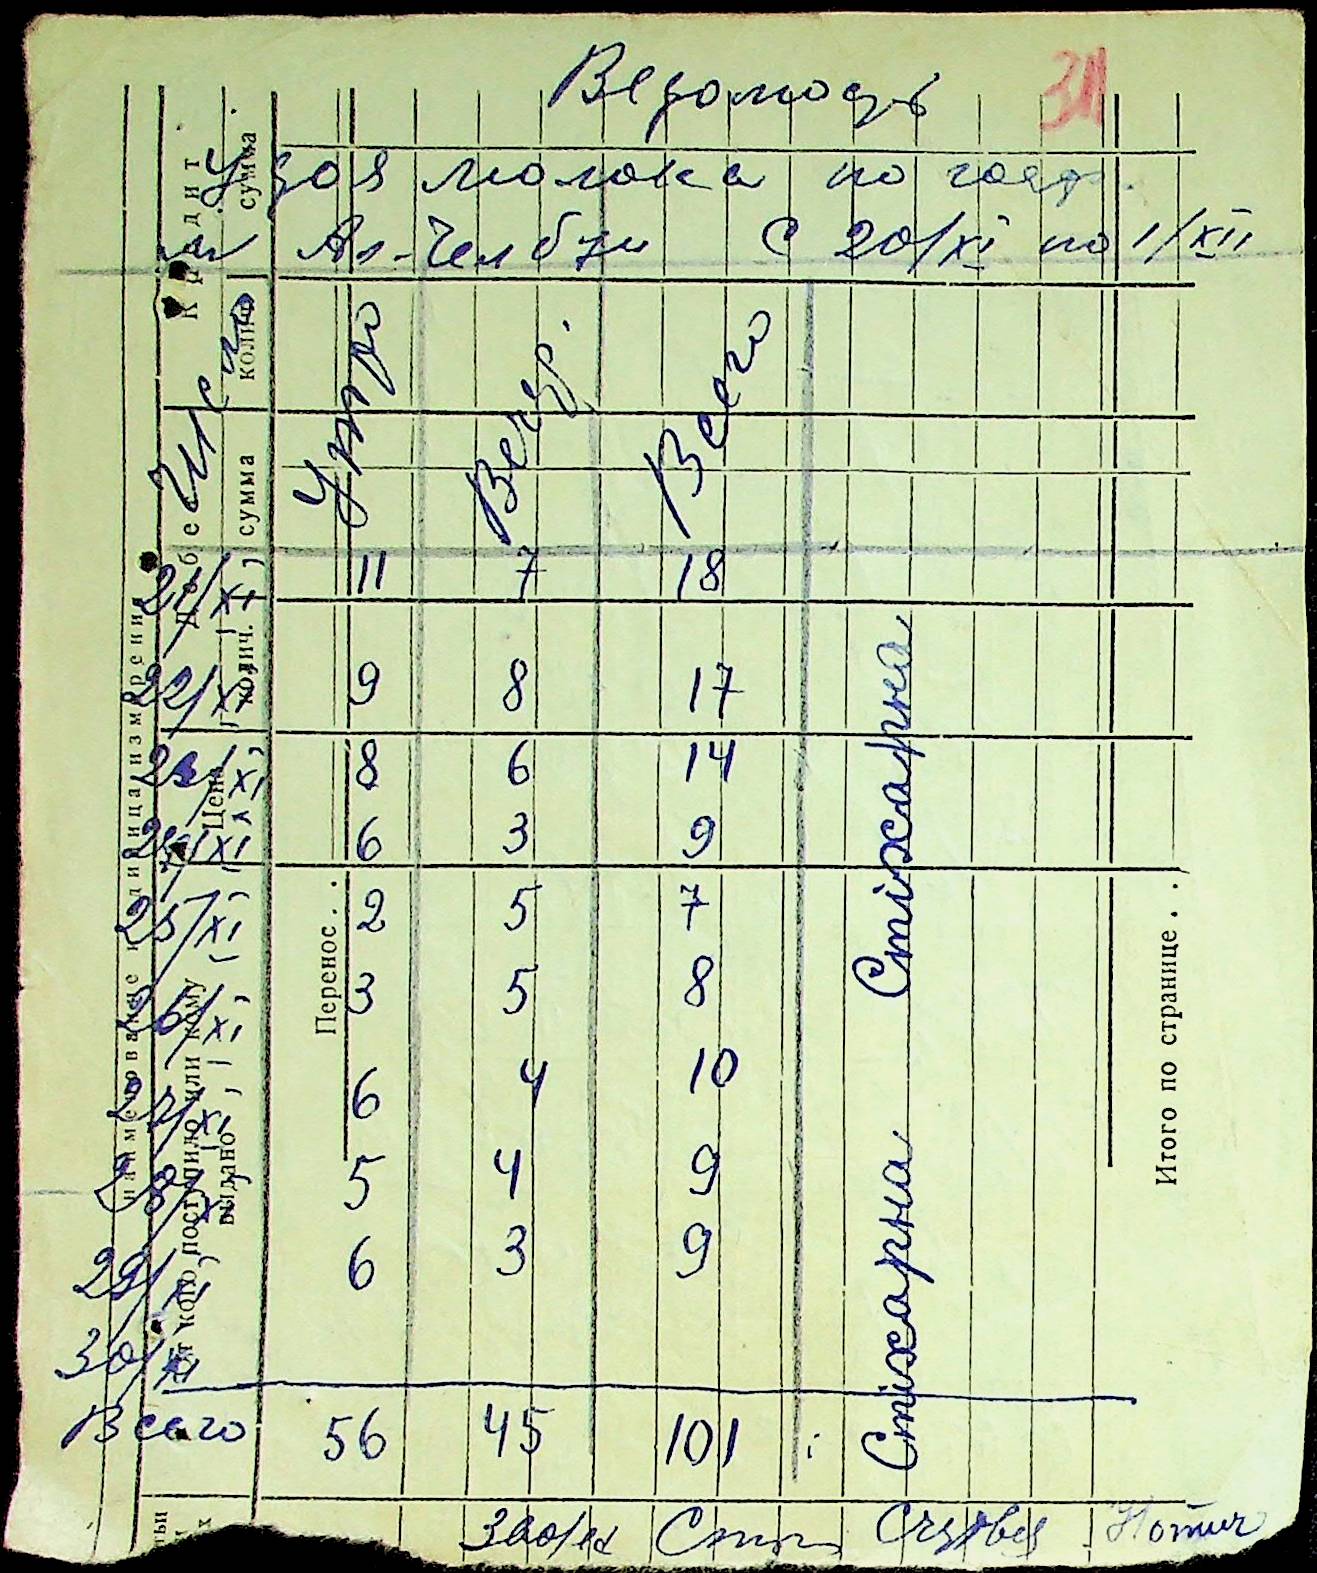 Ведомость
31
Удоя молока по госх.
с 20/XI по 1/XII
Число Утро Вечер. Всего
21/XI 11 7 18
22/XI 9 8 17
23/XI 8 6 14
24/XI 6 3 9
25/XI 2 5 7
26/XI 3 5 8
27/XI 6 4 10
28/XI 5 4 9
29/XI 6 3 9
30/XI
Всего 56 45 101
Стіхарна
Стіхарна
Кредит
сумма
колич.
Дебет
сумма
колич.
Цена
наименование и единица измерения
От кого поступило или кому
выдано
Перенос . .
Итого по странице . .